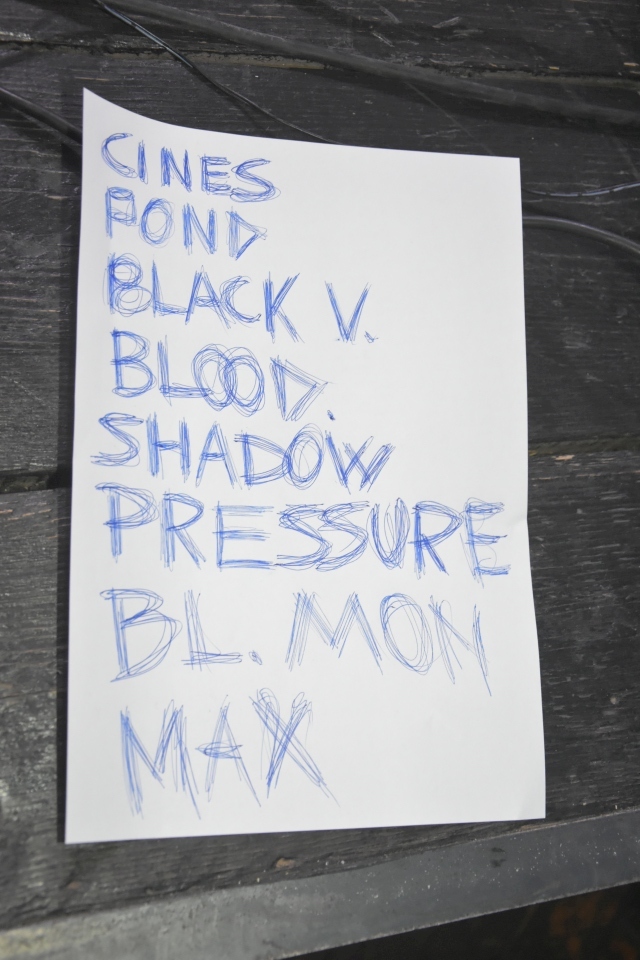 CINES
POND
BLACK V.
BLOOD.
SHADOW
PRESSURE
BL. MON
MAX